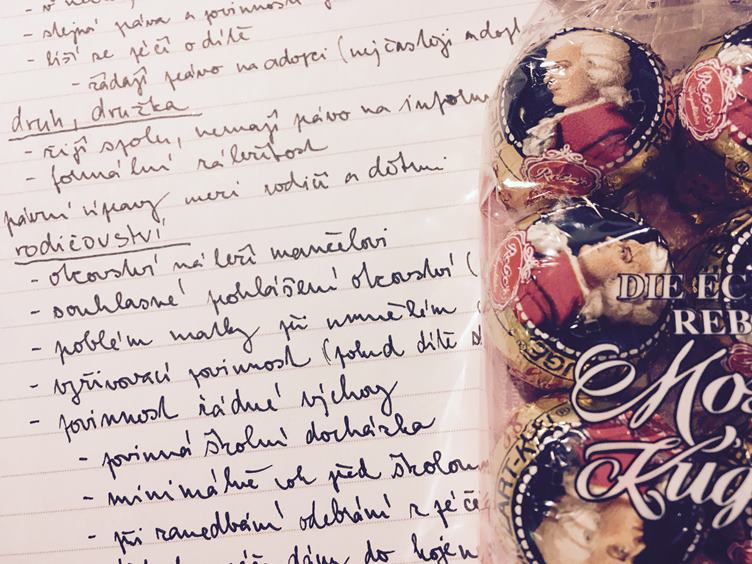 - stejná práva a povinnosti
- liší se péčí o dítě
- žádají právo na adopci (nejčastěji adopt
druh, družka
- žijí spolu, nemají právo na inform
- formální záležitost
právní úpravy mezi rodiči a dětmi
rodičovství
- otcovství náleží manželovi
- souhlasné prohlášení otcovství (
- problém matky při umělém
- vyživovací povinnost (pokud dítě s
- povinnost řádné výchovy
- povinná školní docházka
- minimálně rok před školou
- při zanedbání odebrání z péče
dám do kojen
Reber
Reber
Reber
DIE EC
REB
Moz
Kug
ART-KUGE